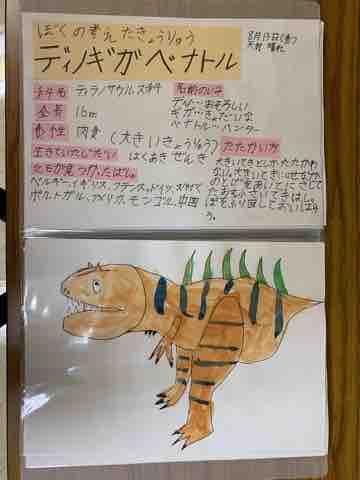 ぼくの考えたきょうりゅう
ディノギガベナトル
8月15日(金)
科名 ティラノサウルス科
全長 16m
食性 肉食(大きいきょうりゅう)
生きていたじだい はくあきぜんき
化石が見つかったばしょ
ベルギー、イギリス、フランス、ドイツ、スペイン
ポルトガル、アメリカ、モンゴル、中国
名前のいみ
ディノ…おそろしい
ギガ…きょだいな
ベナトル…ハンター
たたかい方
大きいてきとしかたたかわ
ない。大きいてきにはせなか
のとげをあいてにさして
たおす。小さいてきは、しっ
ぽをふり回しておいはら
う。